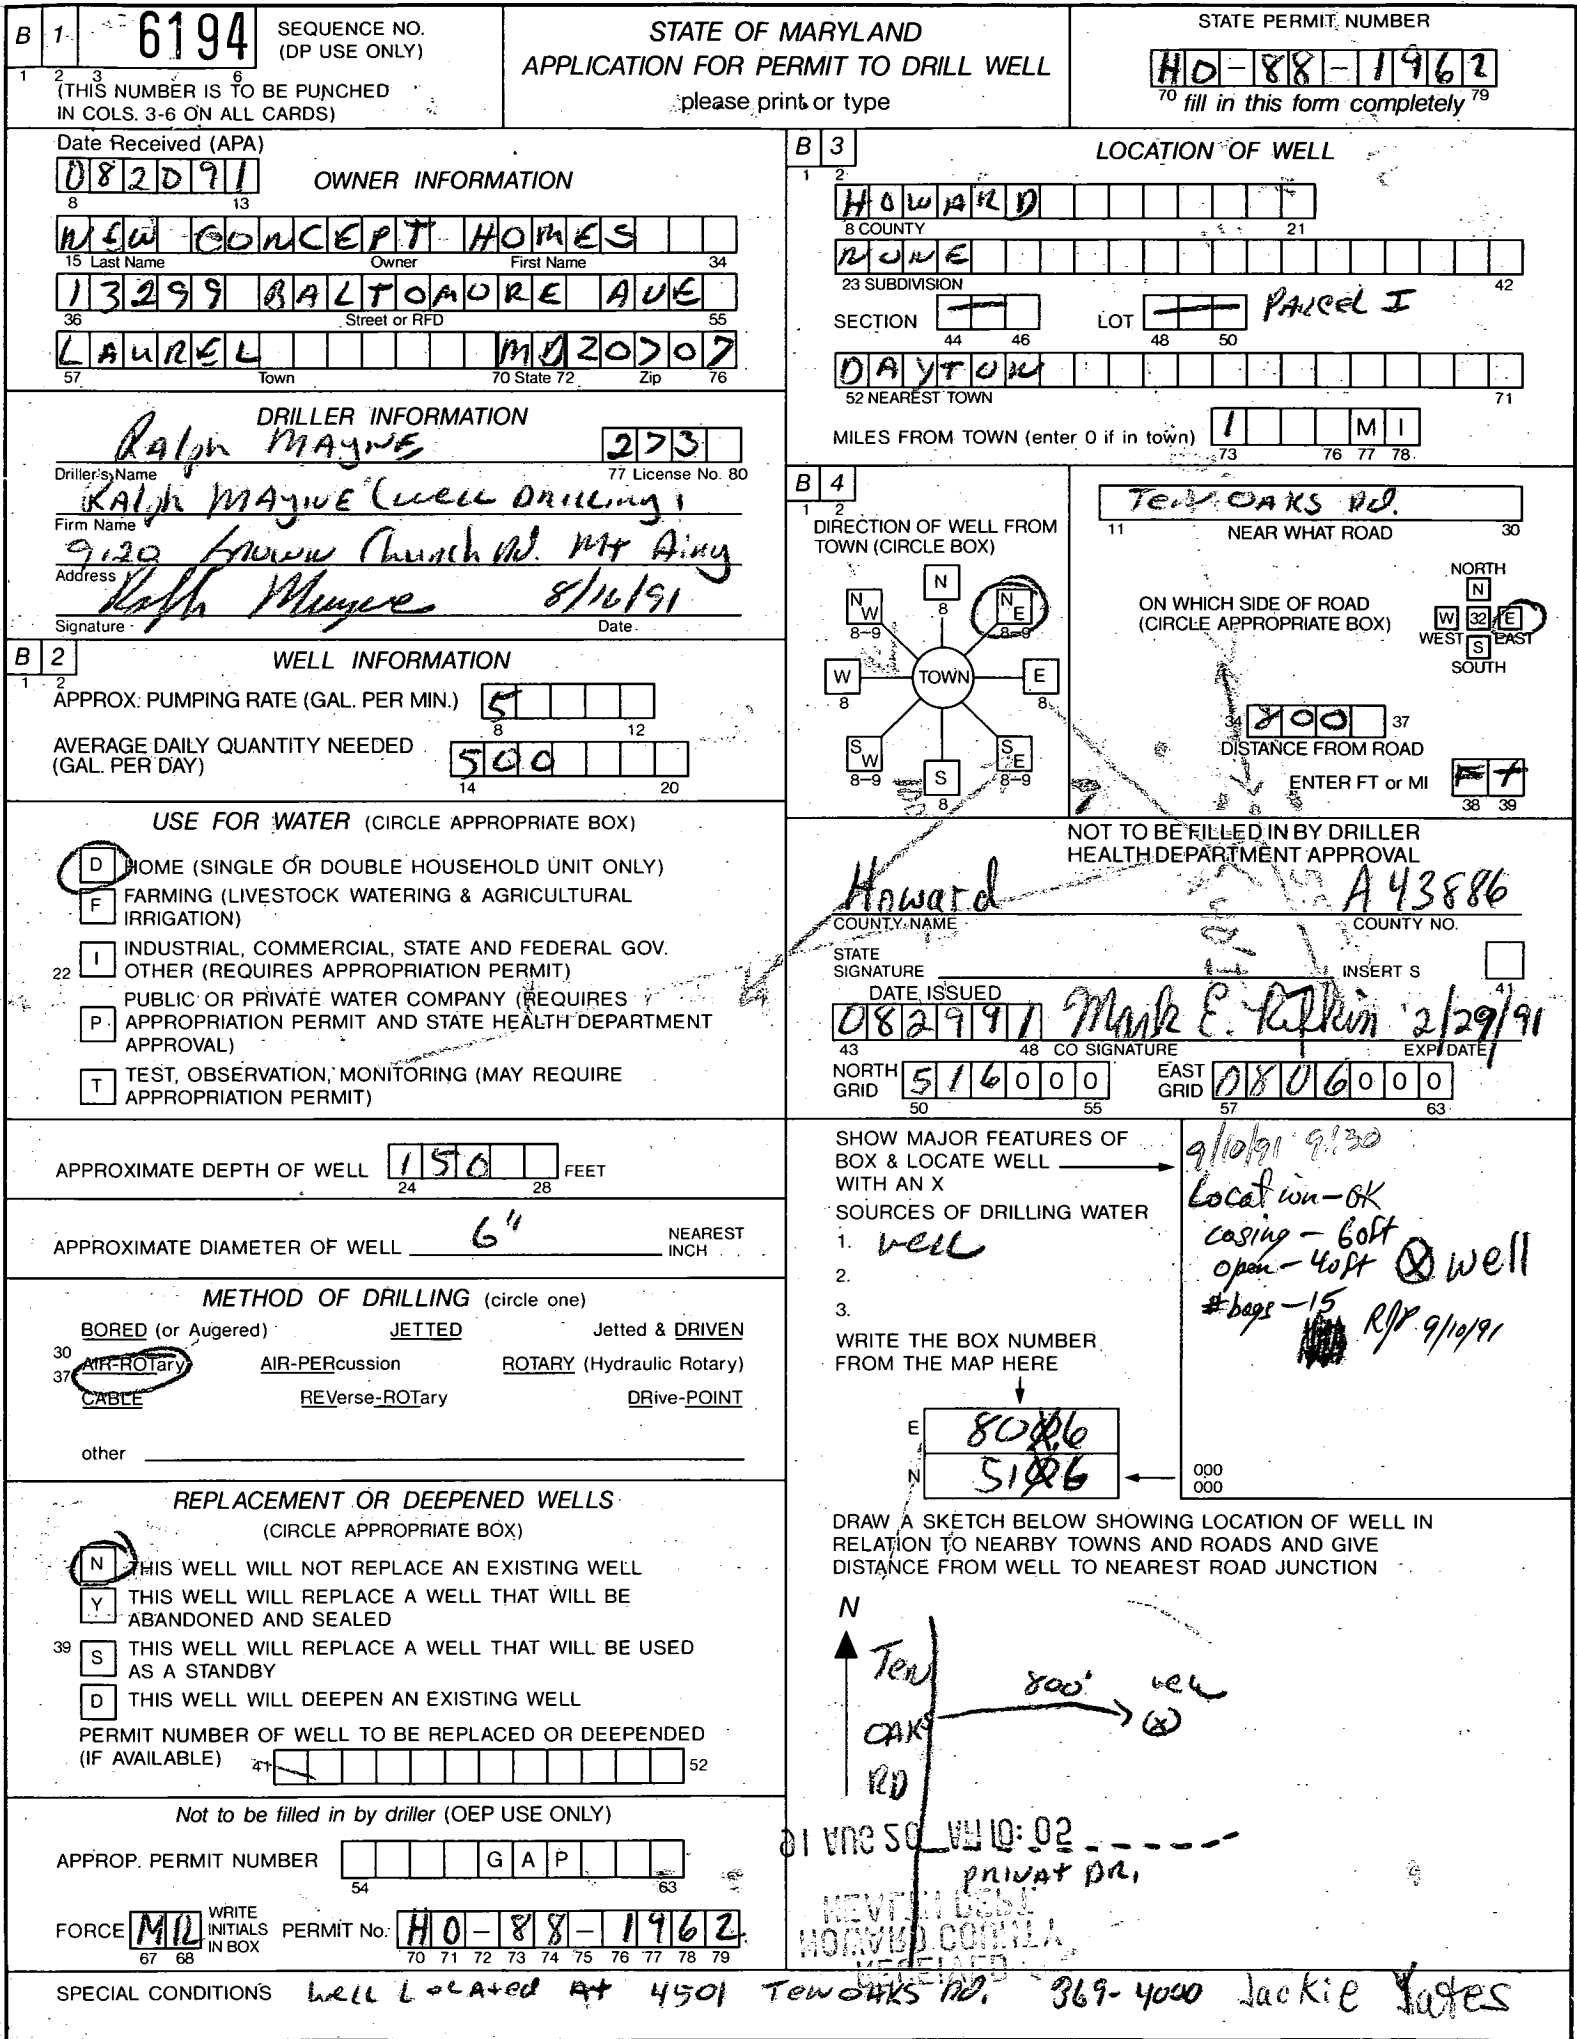 B 1 6194 SEQUENCE NO. (DP USE ONLY)
1 2 3 6
(THIS NUMBER IS TO BE PUNCHED
IN COLS. 3-6 ON ALL CARDS)
STATE OF MARYLAND
APPLICATION FOR PERMIT TO DRILL WELL
please print or type
STATE PERMIT NUMBER
HO-88-1962
70 fill in this form completely 79
Date Received (APA)
082091
8 13
OWNER INFORMATION
NEW CONCEPT HOMES
15 Last Name Owner First Name 34
13299 BALTOMORE AVE
36 Street or RFD 55
LAUREL MD 20707
57 Town 70 State 72 Zip 76
DRILLER INFORMATION
Ralph MAYNE 273
Driller's Name 77 License No. 80
Ralph MAYNE (Well Drilling)
Firm Name
9120 Brown Church Rd. Mt Airy
Address
Ralph Mayne 8/16/91
Signature Date
B 2 WELL INFORMATION
1 2
APPROX. PUMPING RATE (GAL. PER MIN.) 5
8 12
AVERAGE DAILY QUANTITY NEEDED
(GAL. PER DAY) 500
14 20
USE FOR WATER (CIRCLE APPROPRIATE BOX)
D HOME (SINGLE OR DOUBLE HOUSEHOLD UNIT ONLY)
F FARMING (LIVESTOCK WATERING & AGRICULTURAL
IRRIGATION)
22 I INDUSTRIAL, COMMERCIAL, STATE AND FEDERAL GOV.
OTHER (REQUIRES APPROPRIATION PERMIT)
P PUBLIC OR PRIVATE WATER COMPANY (REQUIRES
APPROPRIATION PERMIT AND STATE HEALTH DEPARTMENT
APPROVAL)
T TEST, OBSERVATION, MONITORING (MAY REQUIRE
APPROPRIATION PERMIT)
APPROXIMATE DEPTH OF WELL 150 FEET
24 28
APPROXIMATE DIAMETER OF WELL 6" NEAREST
INCH
METHOD OF DRILLING (circle one)
BORED (or Augered) JETTED Jetted & DRIVEN
30 AIR-ROTary AIR-PERcussion ROTARY (Hydraulic Rotary)
37 CABLE REVerse-ROTary DRive-POINT
other
REPLACEMENT OR DEEPENED WELLS
(CIRCLE APPROPRIATE BOX)
N THIS WELL WILL NOT REPLACE AN EXISTING WELL
Y THIS WELL WILL REPLACE A WELL THAT WILL BE
ABANDONED AND SEALED
39 S THIS WELL WILL REPLACE A WELL THAT WILL BE USED
AS A STANDBY
D THIS WELL WILL DEEPEN AN EXISTING WELL
PERMIT NUMBER OF WELL TO BE REPLACED OR DEEPENDED
(IF AVAILABLE) 41 52
Not to be filled in by driller (OEP USE ONLY)
APPROP. PERMIT NUMBER GAP
54 63
FORCE MR WRITE INITIALS IN BOX PERMIT No. HO-88-1962
67 68 70 71 72 73 74 75 76 77 78 79
B 3 LOCATION OF WELL
1 2
HOWARD
8 COUNTY 21
NONE
23 SUBDIVISION 42
SECTION — LOT — PARCEL I
44 46 48 50
DAYTON
52 NEAREST TOWN 71
MILES FROM TOWN (enter 0 if in town) 1 MI
73 76 77 78
B 4
1 2
DIRECTION OF WELL FROM
TOWN (CIRCLE BOX)
N 8
NW 8-9 NE 8-9
W 8 TOWN E 8
SW 8-9 SE 8-9
S 8
Ten OAKS Rd.
11 NEAR WHAT ROAD 30
ON WHICH SIDE OF ROAD
(CIRCLE APPROPRIATE BOX)
NORTH
N
W 32 E
WEST EAST
S
SOUTH
34 800 37
DISTANCE FROM ROAD
ENTER FT or MI Ft
38 39
NOT TO BE FILLED IN BY DRILLER
HEALTH DEPARTMENT APPROVAL
Howard A 43886
COUNTY NAME COUNTY NO.
STATE
SIGNATURE INSERT S
41
DATE ISSUED
082991 Mark E. Rifkin 2/29/91
43 48 CO SIGNATURE EXP DATE
NORTH GRID 516000 EAST GRID 0806000
50 55 57 63
SHOW MAJOR FEATURES OF
BOX & LOCATE WELL
WITH AN X
SOURCES OF DRILLING WATER
1. well
2.
3.
WRITE THE BOX NUMBER
FROM THE MAP HERE
E 806
N 516
9/10/91 9:30
Location-OK
casing - 60ft
open - 40ft X well
#bags - 15
9/10/91
000
000
DRAW A SKETCH BELOW SHOWING LOCATION OF WELL IN
RELATION TO NEARBY TOWNS AND ROADS AND GIVE
DISTANCE FROM WELL TO NEAREST ROAD JUNCTION
N
Ten
OAKS
RD
800' well
(X)
91 AUG 20 AM 10:02
PRIVAT DR.
HEALTH DEPT
HOWARD COUNTY
RECEIVED
SPECIAL CONDITIONS Well Located At 4501 Ten OAKS Rd. 369-4000 Jackie Yates